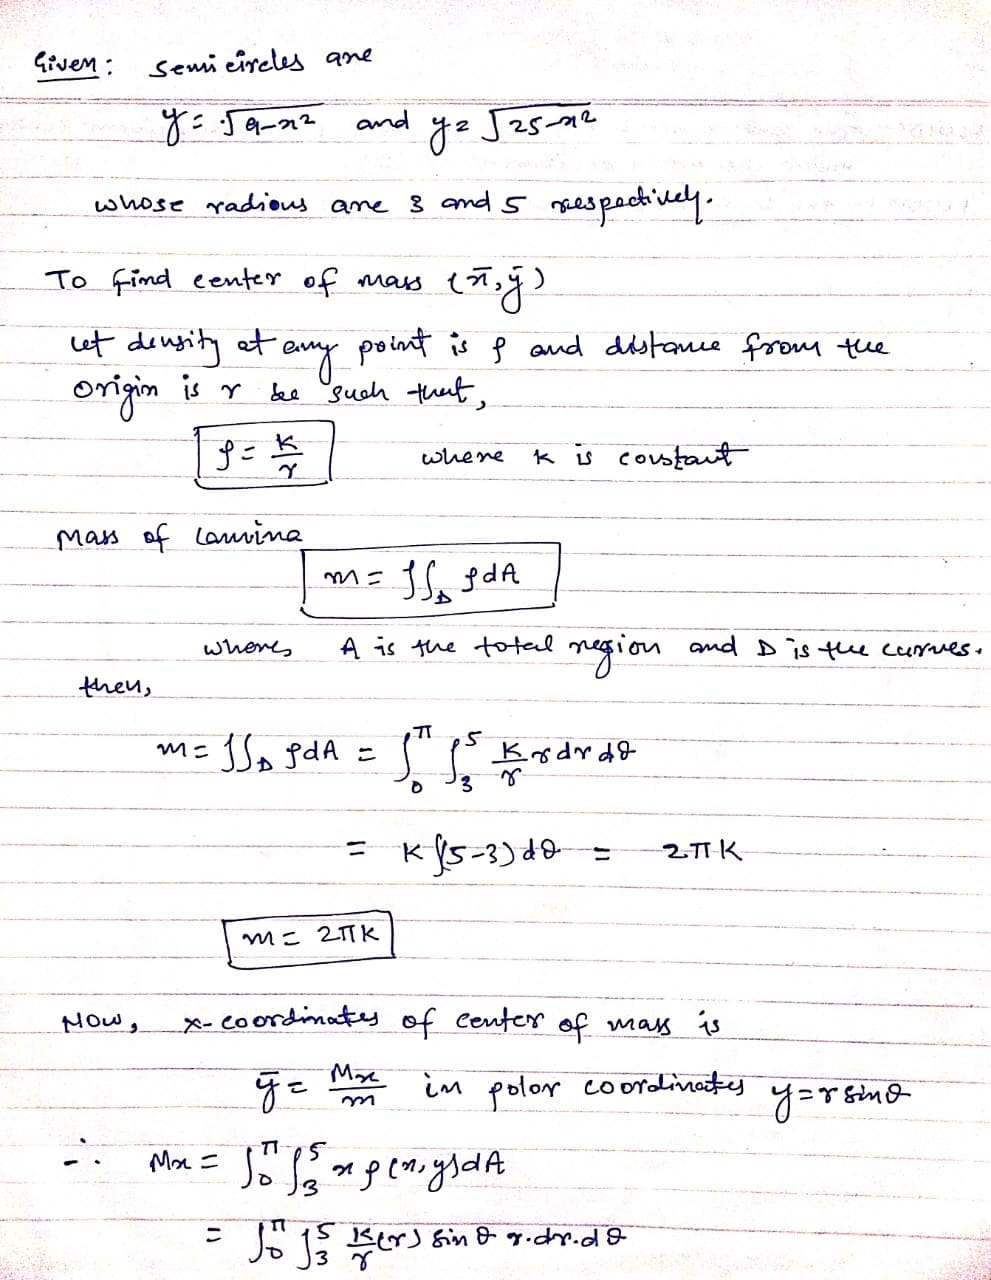 Given: semi circles are
y = √9-x² and y = √25-x²
whose radious are 3 and 5 respectively.
To find center of mass (x̄, ȳ)
Let density at any point is ρ and distance from the
origin is r be such that,
ρ = K/r where K is constant
Mass of lamina
m = ∫∫_D ρdA
where, A is the total region and D is the curves.
then,
m = ∫∫_D ρdA = ∫_0^π ∫_3^5 K/r r dr dθ
= K ∫(5-3) dθ = 2πK
m = 2πK
Now, x-coordinates of center of mass is
ȳ = Mx/m in polor coordinates y = r sinθ
∴ Mx = ∫_0^π ∫_3^5 x ρ(x,y) dA
= ∫_0^π ∫_3^5 K/r (r) sin θ r.dr.dθ